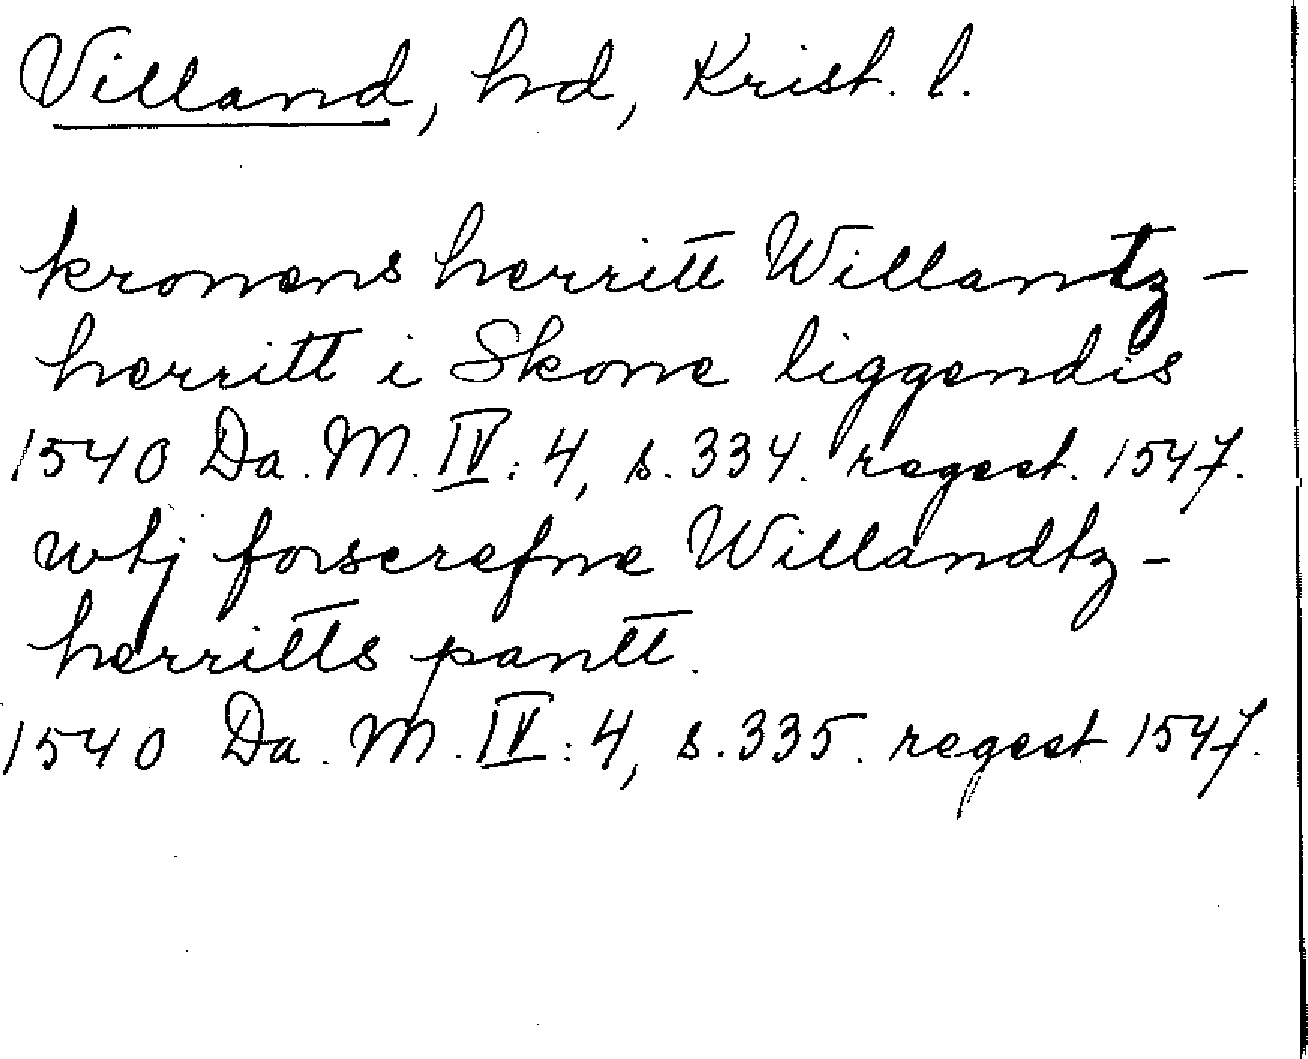 Villand, hd, Krist. l.
kronens herritt Willantz-
herritt i Skone liggendis
1540 Da. M. IV: 4, s. 334. regest. 1547.
wtj forscrefne Willandtz-
herritts pantt.
1540 Da. M. IV: 4, s. 335. regest 1547.